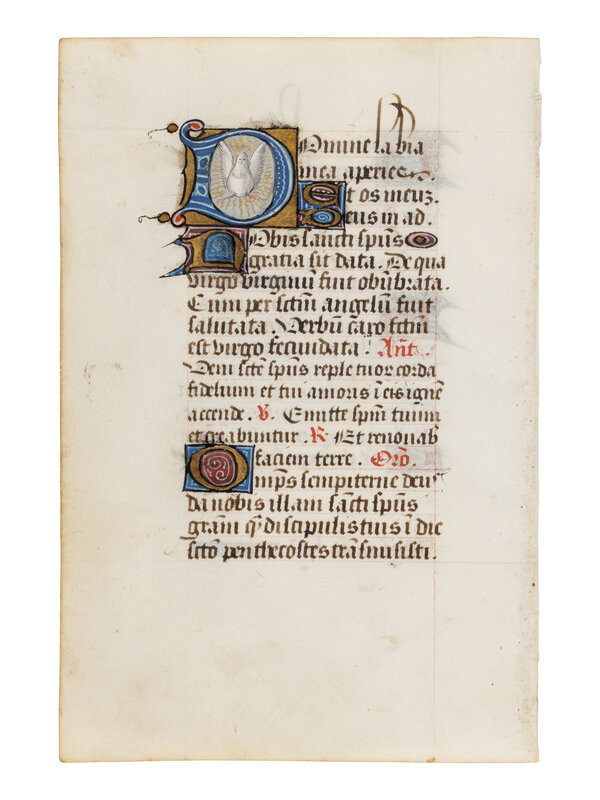 Domine labia
mea aperies.
Et os meuz.
Deus in ad.
Nobis sancti spūs
gratia sit data. De qua
virgo virginū fuit obūbrata.
Cum per sctm̄ angelū fuit
salutata. Verbū caro fctm̄
est virgo fecundata. Ant̄.
Veni scte spūs reple tuor corda
fidelium et tui amoris ī eis ignē
accende. V. Emitte spm̄ tuum
et creabuntur. R. Et renovab
faciem terre. Orō.
Omps sempiterne deus
da nobis illam sancti spūs
gram̄ q̄ discipulis tuis ī die
sctō penthecostes transmisisti.